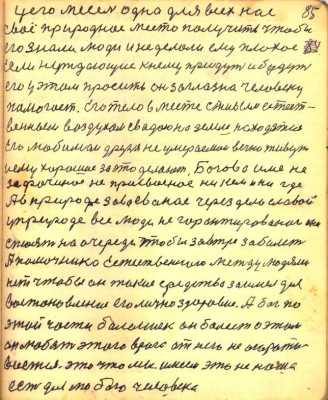 85
у его месем одна для всех нас
своё природное место получить чтобы
его знали люди и неделали ему плохое
если нуждающие к нему придут и будут
его у этом просить он заглазна человеку
помогает. Его тело в месте с живым естест-
венным воздухом с водою на земле находятся
Его любимая друзья не умераемая вечно живут
ему хорошие за это делают. Богово имя не
за срочиное не привоеное ни кем ни где
А в природе завоёванае через дело славой
у природе все люди не гарантированае они
стоять на очереди чтобы завтра заболеть
А помочника естественного между людями
нет чтобы он такие средства заимел для
востоновление его лично здоровие. А бог по
этой части болельшик он болеет о этом
он любит этого врага от него не отврати-
вается. это что мы имеем эта не наша
есть дело любого человека